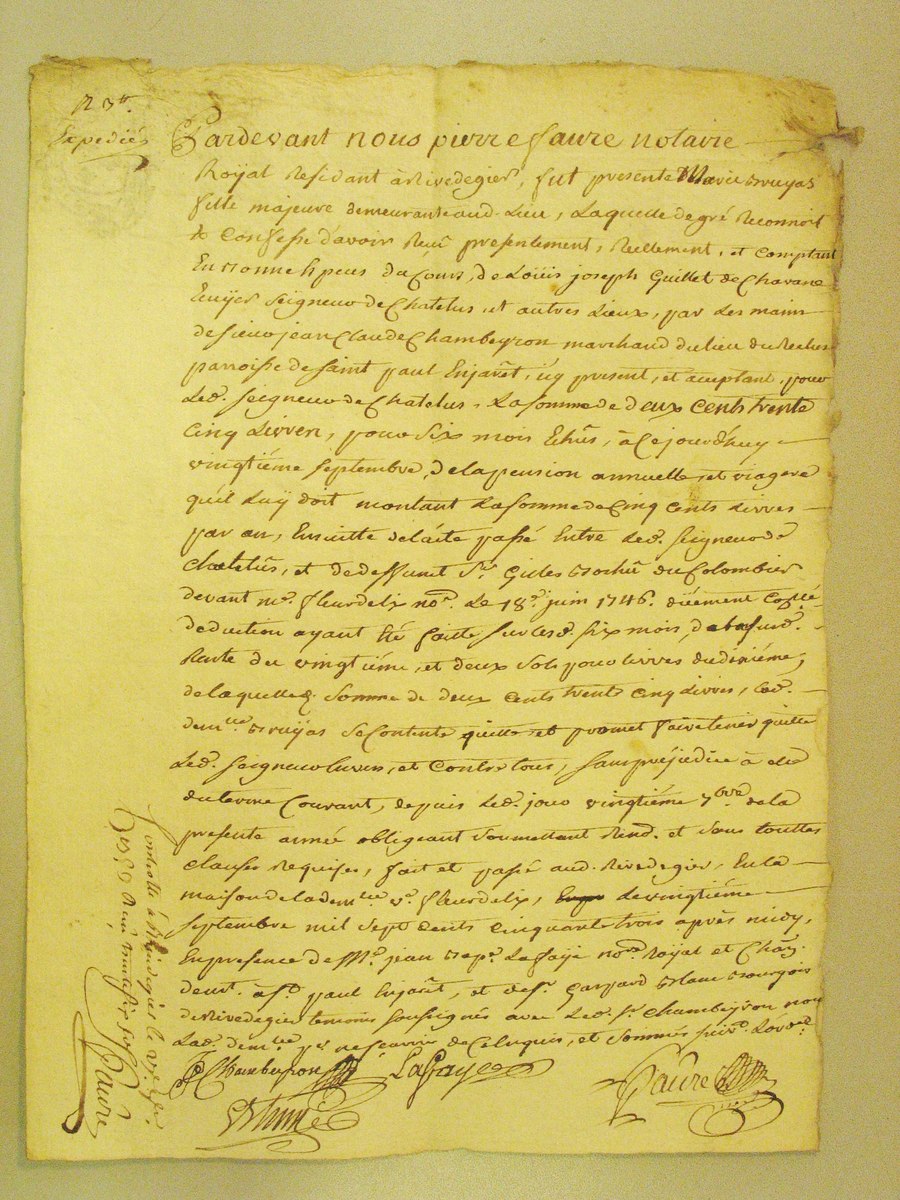 R 3ᵗᵗ.
Expediée
Pardevant nous pierre faure notaire
Royal Residant à Rivedegier, fut presente Marie Bruyas
fille majeure demeurante aud. Lieu, Laquelle de gré Reconnoit
& Confesse d'avoir Reçu presentement, Reellement, et Comptant
En Bonne Espeus du Cours, de Loüis joseph Guillet de Chavane
Ecuyer Seigneur de Chatelus, et autres Lieux, par Les mains
de sieur jean Claude Chambeyron marchand du lieu du
parroisse de saint paul Enjarêt, icy present, et aceptant, pour
Led. Seigneur de Chatelus, La somme de deux cents trente
cinq Livres, pour Six mois Echûs, à Cejourd'huy
vingtième Septembre, de la pension annuelle et viagere
quil Luÿ doit montant La somme de Cinq Cents Livres
par an, Ensuitte de l'acte passé Entre Led. Seigneur de
Chatelûs, et de deffunct Sʳ. Gilles Bochû du Colombier
devant mᵉ. fleurdelix noʳᵉ. Le 18ᵉ. juin 1746. düement
deduction ayant été faitte sur lesd. six mois, de
Rente du vingtième, et deux Sols pour livres du dixième,
de laquelle d. Somme de deux cents trente cinq Livres, Lad.
demˡˡᵉ Bruÿas Se Contente quitte et promet faire tenir quitte
Led. Seigneur Envers, et Contre tous, Sans préjudice à elle
du terme Courant, depuis Led. jour vingtième 7ᵇʳᵉ de la
presente année obligeant Soumettant Renᵈ. et Sous touttes
Clauses Requises, fait et passé aud. Rivedegier, En la
maison de la demˡˡᵉ vᵉ. fleurdelix, Le vingtième
Septembre mil Sept Cents Cinquante trois après midy,
En presence de Mᵉ. jean Bapᵗ. Lafaÿe noʳᵉ. Roÿal et
demᵗ. à Sᵗ. paul Enjarêt, et de sʳ. Gaspard Blanc Bourgois
de Rivedegier temoins Soussignés avec Led. Sʳ. Chambeyron non
Lad. demˡˡᵉ pʳ ne Scavoir de Ce Enquis, et Sommés
Chambeyron
Lafaye
Faure
Blanc
Controllé à Rivedegier le
Reçu
Faure